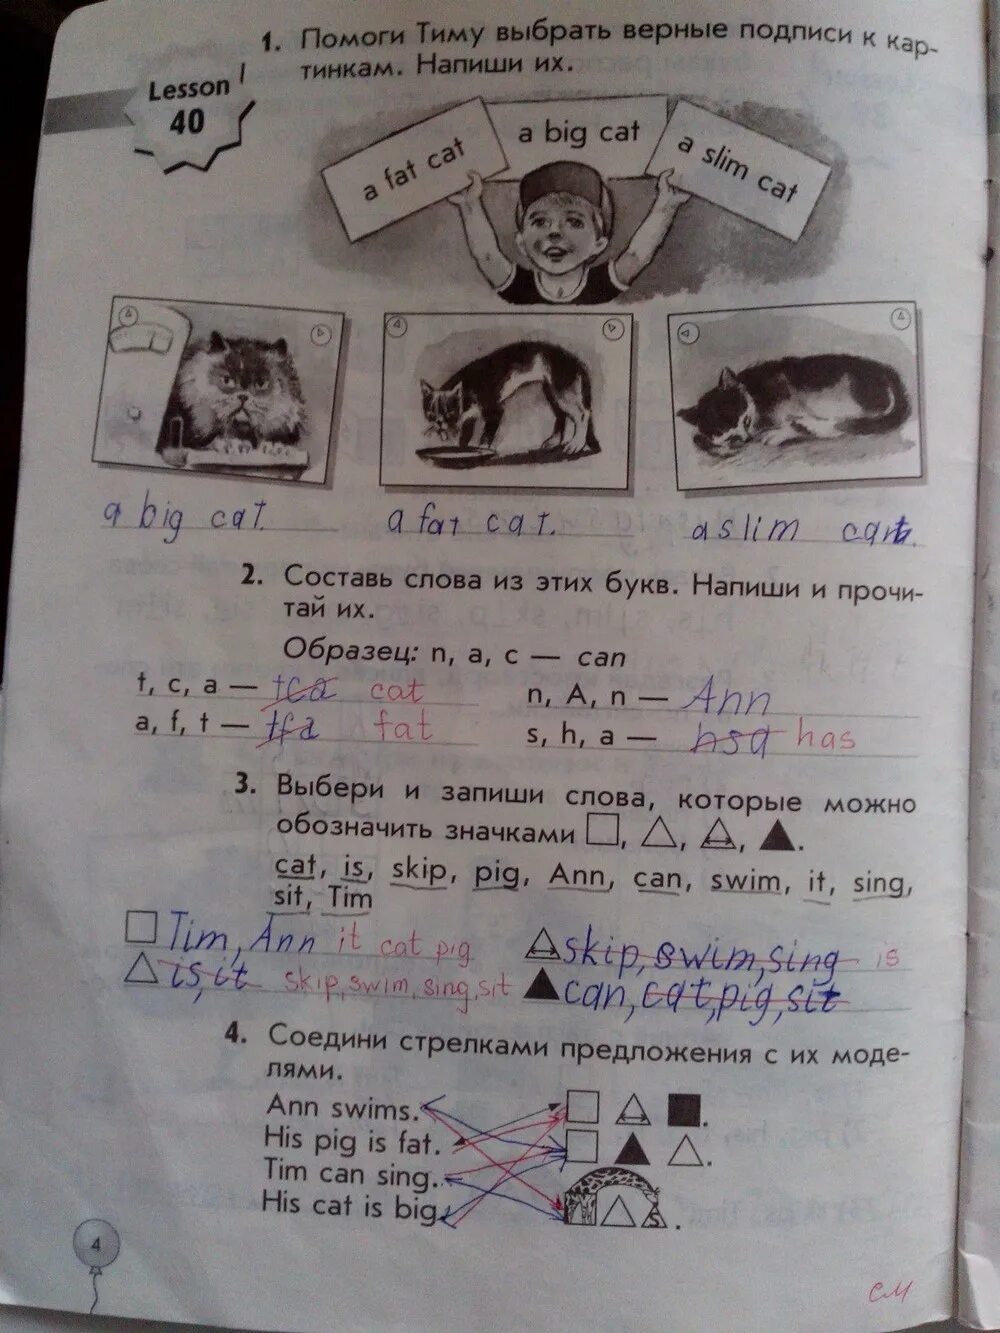 1. Помоги Тиму выбрать верные подписи к кар-
тинкам. Напиши их.
Lesson
40
a fat cat
a big cat
a slim cat
a big cat.
a fat cat.
a slim cat.
2. Составь слова из этих букв. Напиши и прочи-
тай их.
Образец: n, a, c — can
t, c, a — tca cat
n, A, n — Ann
a, f, t — tfa fat
s, h, a — hsa has
3. Выбери и запиши слова, которые можно
обозначить значками □, △, △, ▲.
cat, is, skip, pig, Ann, can, swim, it, sing,
sit, Tim
Tim, Ann it cat pig
skip, swim, sing is
is, it skip, swim, sing, sit
can, cat, pig, sit
4. Соедини стрелками предложения с их моде-
лями.
Ann swims.
His pig is fat.
Tim can sing.
His cat is big.
s
4
см